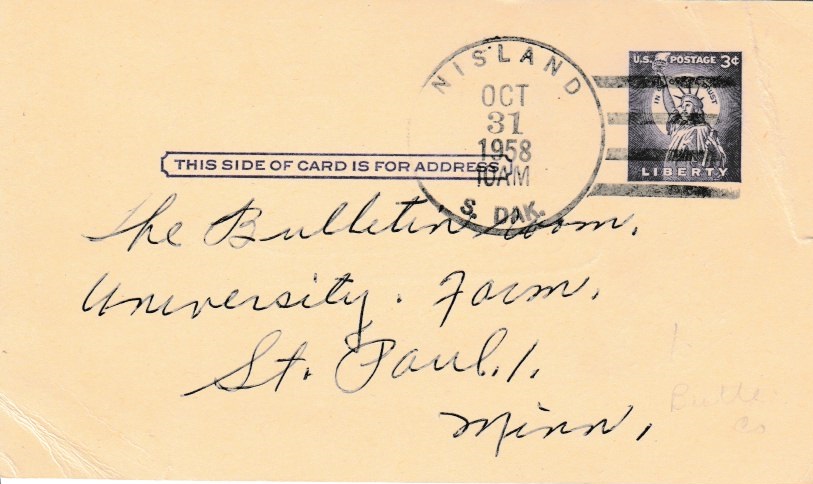 NISLAND
OCT
31
1958
10AM
S. DAK.
U.S. POSTAGE 3¢
IN GOD WE TRUST
LIBERTY
THIS SIDE OF CARD IS FOR ADDRESS
The Bulletin Room,
University. Farm.
St. Paul. 1.
Minn.
1.
Butte
Co